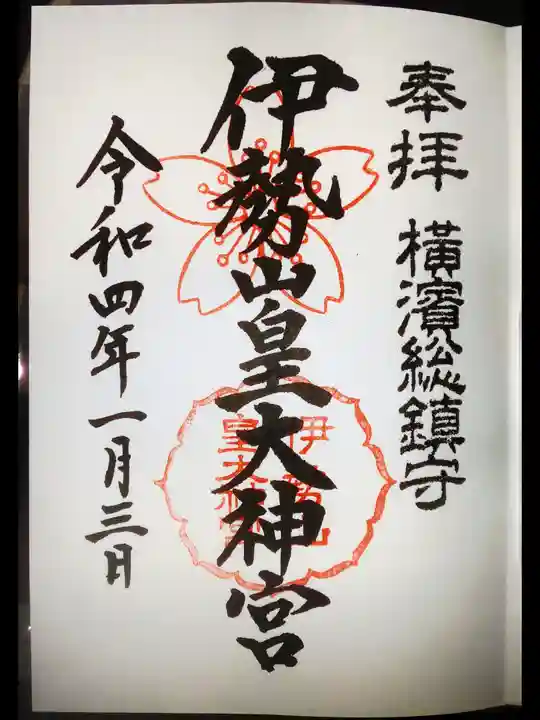 奉拝 横濱総鎮守
伊勢山皇大神宮
伊勢山
皇大神宮
令和四年一月三日